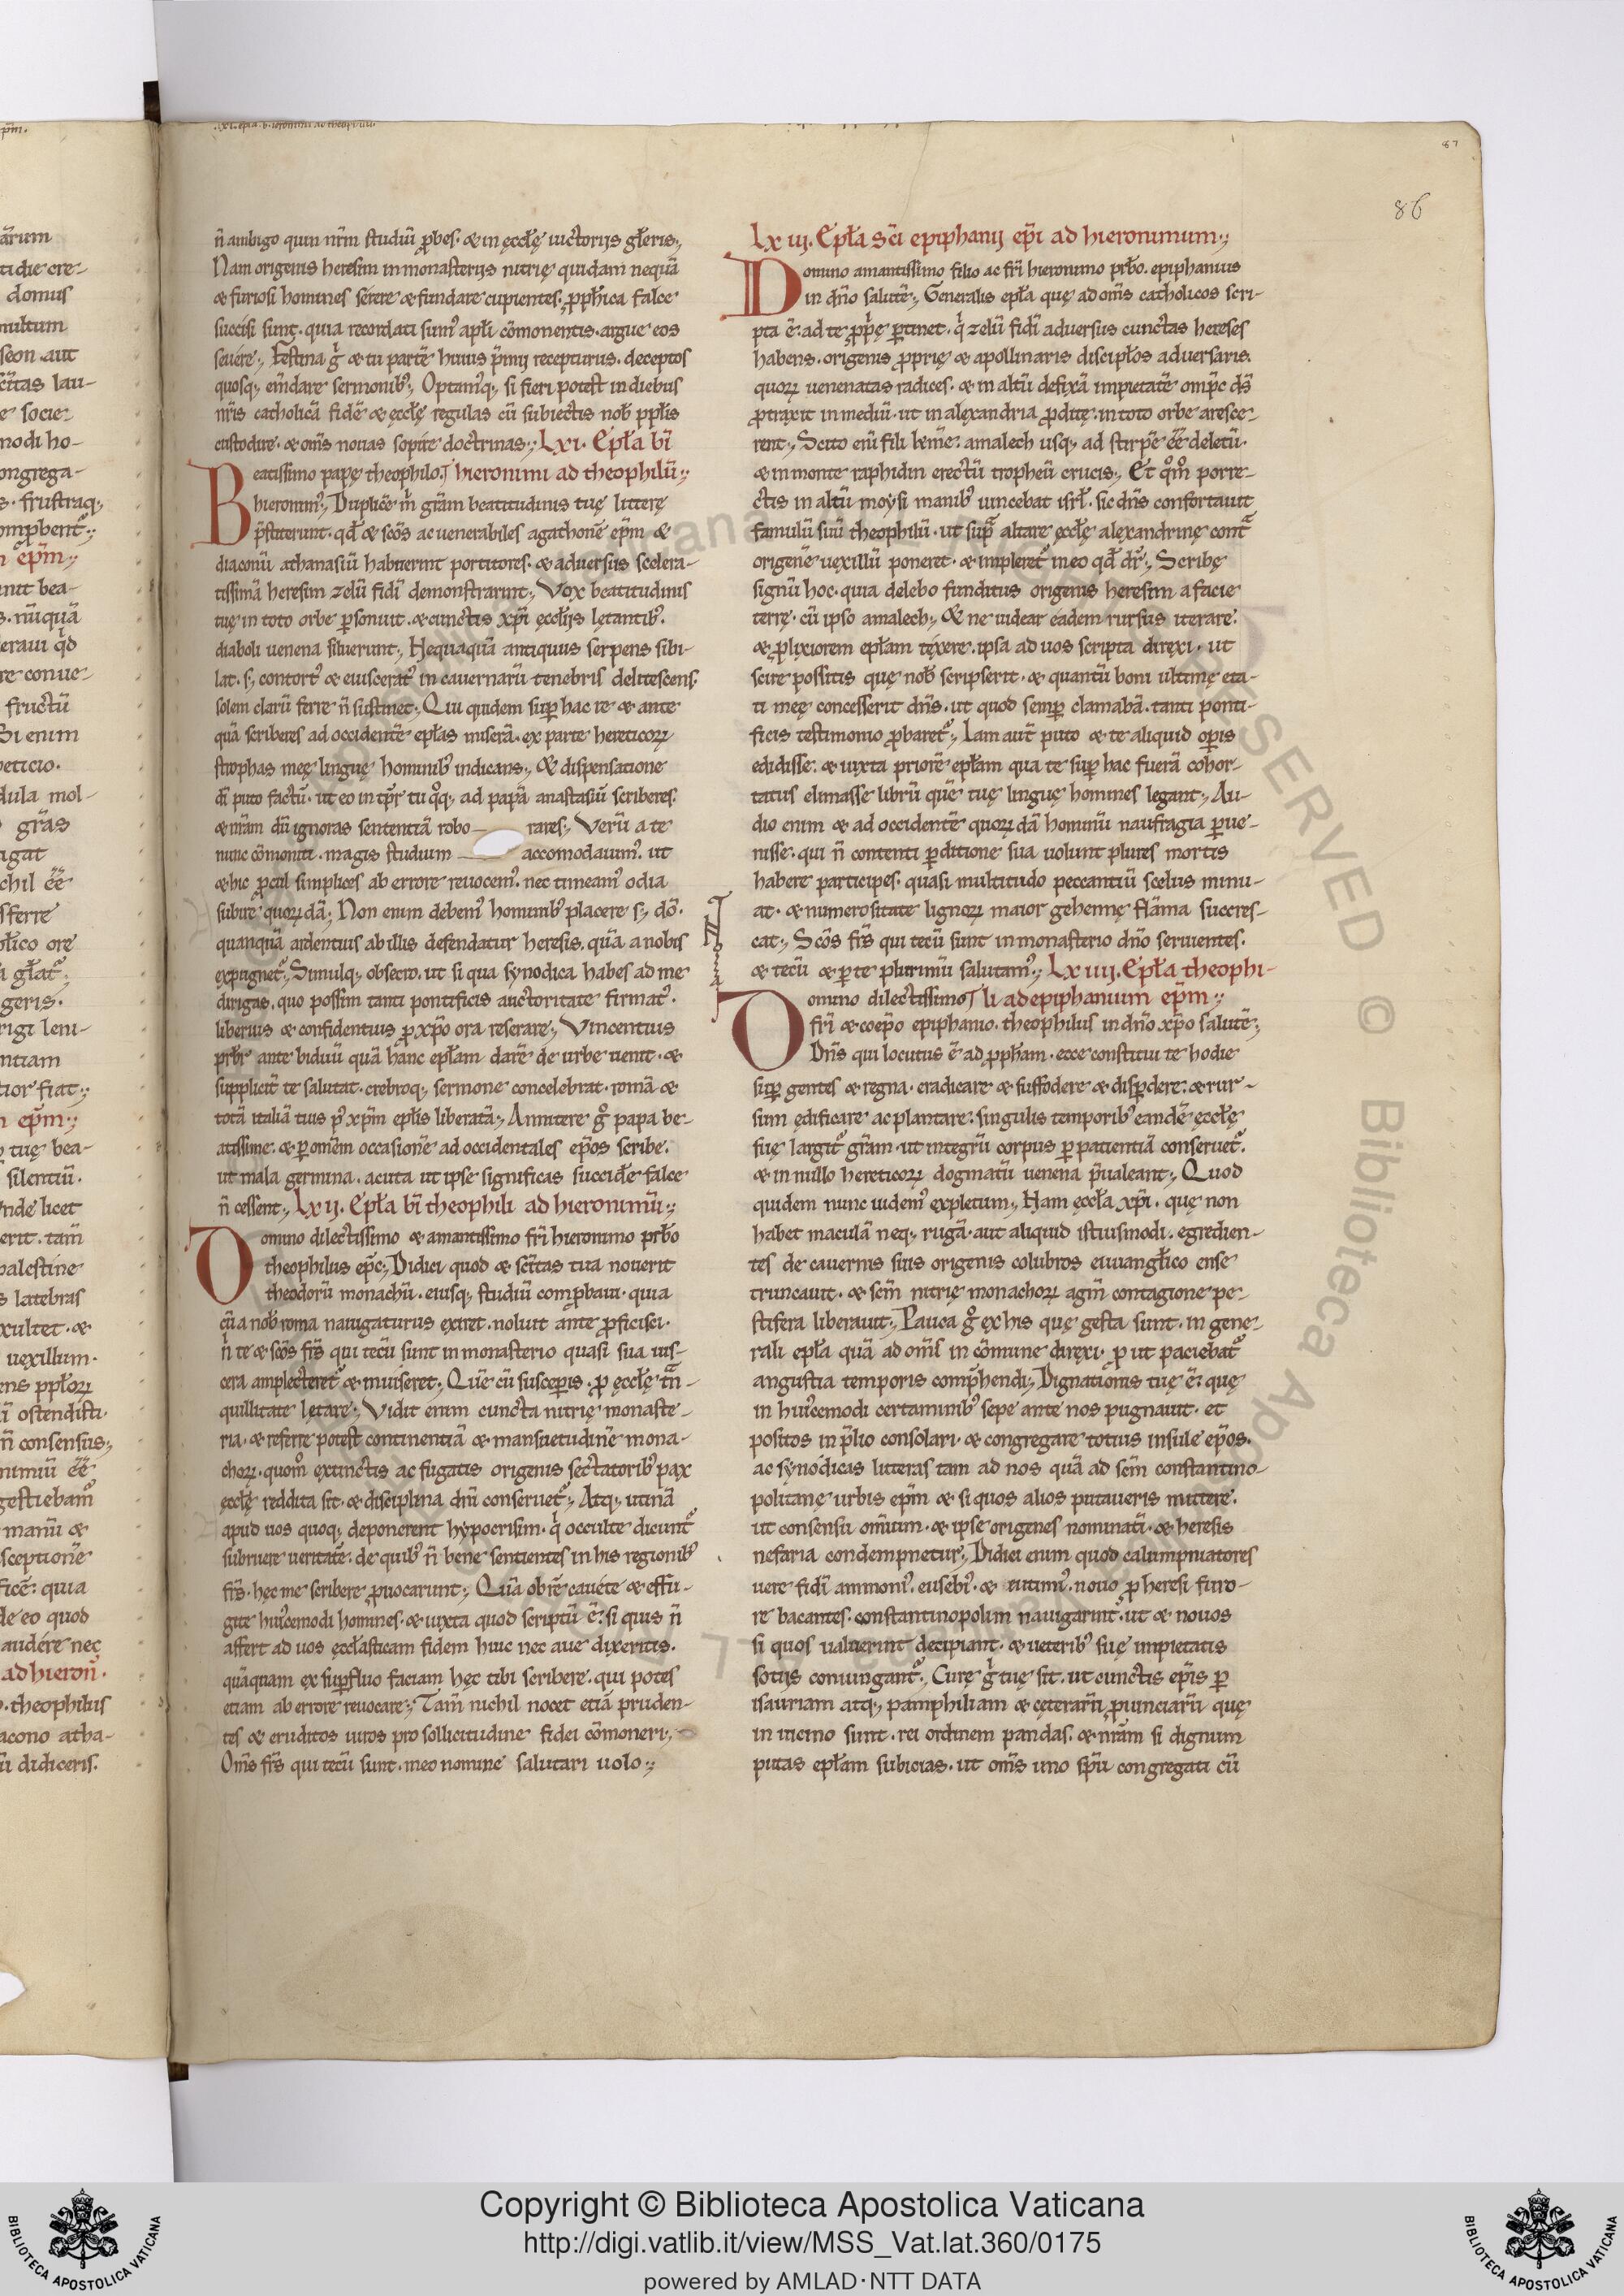 n̄ ambigo quin nr̄m studiū ꝓbes. & in ęccłę uictorijs gl̄eris.,
Nam origenis heresim in monasterijs nitrię quidam nequā
& furiosi homines serere & fundare cupientes. ꝓpħica falce
succisi sunt. quia recordati sum᾽ apłi cōmonentis. argue eos
seuere., Festina g̊ & tu partē huius p̄mij recepturus. deceptos
quosq; em̄dare sermonib᾽., Optam᾽q; si fieri potest in diebus
nr̄is catholicā fidē & ęccłę regulas cū subiectis nob̄ ppłis
custodire. & om̄s nouas sopire doctrinas., Lxi. Epła bī
Beatissimo papę theophilo. hieronimi ad theophilū.,
hieronim᾽., Duplicē m̄ gr̄am beatitudinis tuę litterę
p̄stiterunt. qđ & sc̄os ac uenerabiles agathonē ep̄m &
diaconū athanasiū habuerint portitores. & aduersus scelera-
tissimā heresim zelū fidī demonstrarint., Vox beatitudinis
tuę in toto orbe ꝑsonuit. & cunctis xp̄i ęccłijs lętantib᾽.
diaboli uenena siluerunt., Nequaquā antiquus serpens sibi-
lat. s; contort᾽ & euiscerat᾽ in cauernarū tenebris delitescens.
solem clarū ferre n̄ sustinet., Qui quidem suꝑ hac re & ante
quā scriberes ad occidentē epłas miserā. ex parte hereticoꝝ
strophas meę linguę hominib᾽ indicans., & dispensatione
dī puto factū. ut eo in tp̄r tu q̊q; ad papā anastasiū scriberes.
& nr̄am dū ignoras sententiā robo- rares., Verū a te
nunc cōmoniti. magis studium accomodauim᾽. ut
& hic ꝓcul simplices ab errore reuocem᾽. nec timeam᾽ odia
subire quoꝝdā., Non enim debem᾽ hominib᾽ placere s; dō.
quanquā ardentius ab illis defendatur heresis. quā a nobis
expugnet᾽., Simulq; obsecro. ut si qua synodica habes ad me
dirigas. quo possim tanti pontificis auctoritate firmat᾽.
liberius & confidentius ꝓ xp̄o ora reserare., Vincentius
prb̄r ante biduū quā hanc epłam darē de urbe uenit. &
suppliciť te salutat. crebroq; sermone concelebrat. romā &
totā italiā tuis p᾽ xp̄m epłis liberatā., Annitere g̊ papa be-
atissime. & ꝑ omēm occasionē ad occidentales ep̄os scribe.
ut mala germina. acuta ut ipse significas succiđe falce
n̄ cessent., Lxij. Epła bī theophili ad hieronimū.,
Domino dilectissimo & amantissimo frī hieronimo prb̄o
theophilus ep̄c., Didici quod & sc̄itas tua nouerit
theodorū monachū. eiusq; studiū comꝓbaui. quia
cū a nob̄ roma nauigaturus exiret. noluit ante ꝓficisci.
n̊ te & sc̄os fr̄s qui tecū sunt in monasterio quasi sua uis-
cera amplecteret᾽ & inuiseret., Quē cū susceꝑis. ꝓ ęccłę trā-
quillitate lętare., Vidit enim cuncta nitrię monaste-
ria. & referre potest continentiā & mansuetudinē mona-
choꝝ. quom̊ extinctis ac fugatis origenis sectatorib᾽ pax
ęccłę reddita sit. & disciplina dn̄i conseruet᾽., Atq; utinā
apud uos quoq; deponerent hypocrisim. q̊ occulte dicunt᾽
subruere ueritatē. de quib᾽ n̄ bene sentientes in his regionib᾽
fr̄s. hęc me scribere ꝓuocarunt., Quā obrē cauete & effu-
gite hui᾽cemodi homines. & iuxta quod scriptū ē. si quis n̄
affert ad uos ęccłasticam fidem huic nec aue dixeritis.
quāquam ex suꝑfluo faciam hęc tibi scribere. qui potes
etiam ab errore reuocare., Tam̄ nichil nocet etiā pruden-
tes & eruditos uiros pro sollicitudine fidei cōmoneri.,
Om̄s fr̄s qui tecū sunt. meo nomine salutari uolo.,
86
Lxiij. Epła sc̄i epiphanij ep̄i ad hieronimum.,
Domino amantissimo filio ac frī hieronimo prb̄o. epiphanius
in dn̄o salutē., Generalis epła quę ad om̄s catholicos scri-
pta ē. ad te ꝓp̄ę ꝑtinet. q̊ zelū fidī aduersus cunctas hereses
habens. origenis ꝓprię & apollinaris discipłos aduersaris.
quoꝝ uenenatas radices. & in altū defixā impietatē omp̄c ds̄
ꝓtraxit in mediū. ut in alęxandria ꝓditę. in toto orbe aresce-
rent., Scito enī fili kmē. amalech usq; ad stirpē ēē deletū.
& in monte raphidin erectū tropheū crucis., Et qm̊ porre-
ctis in altū moysi manib᾽ uincebat isrł. sic dn̄s confortauit
famulū suū theophilū. ut supᵃ altare ęccłę alęxandrinę contᵃ
origenē uexillū poneret. & impleret᾽ in eo qđ dr̄., Scribę
signū hoc. quia delebo funditus origenis heresim a facie
terrę. cū ipso amalech., & ne uidear eadem rursus iterare.
& ꝓlixiorem epłam tęxere. ipsa ad uos scripta diręxi. ut
scire possitis quę nob̄ scripserit. & quantū boni ultimę eta-
ti meę concesserit dn̄s. ut quod semꝑ clamabā. tanti ponti-
ficis testimonio ꝓbaret᾽., Iam aut̄ puto & te aliquid oꝑis
edidisse. & iuxta priorē epłam qua te suꝑ hac fuerā cohor-
tatus elimasse librū quē tuę linguę homines legant., Au-
dio enim & ad occidentē quoꝝdā hominū naufragia ꝑue-
nisse. qui n̄ contenti ꝑditione sua uolunt plures mortis
habere participes. quasi multitudo peccantiū scelus minu-
at. & numerositate lignoꝝ maior gehennę flāma succres-
cat., Sc̄os fr̄s qui tecū sunt in monasterio dn̄o seruientes.
& tecū & ꝑ te plurimū salutam᾽., Lxiiij. Epła theophi-
Domino dilectissimo li ad epiphanium ep̄m.,
frī & coep̄o epiphanio. theophilus in dn̄o xp̄o salutē.,
Dn̄s qui locutus ē ad ꝓpħam. ecce constitui te hodie
suꝑ gentes & regna. eradicare & suffodere & disꝑdere. & rur-
sum ędificare ac plantare. singulis temporib᾽ eandē ęccłę
suę largit᾽ gr̄am. ut integrū corpus ꝑ patientiā conseruet᾽.
& in nullo hereticoꝝ dogmatū uenena p̄ualeant., Quod
quidem nunc uidem᾽ expletum., Nam ęccła xp̄i. quę non
habet maculā neq; rugā. aut aliquid istiusmodi. egredien-
tes de cauernis suis origenis colubros euuangłico ense
truncauit. & scm̄ nitrię monachoꝝ agm̄ contagione pe-
stifera liberauit., Pauca g̊ ex his quę gesta sunt. in gene-
rali epła quā ad om̄s in cōmune diręxi. ꝓ ut paciebat᾽
angustia temporis comp̄hendi., Dignationis tuę ē. quę
in hui᾽cemodi certaminib᾽ sepe ante nos pugnauit. et
positos in p̄lio consolari. & congregare totius insule ep̄os.
ac synodicas litteras tam ad nos quā ad scm̄ constantino-
politanę urbis ep̄m & si quos alios putaueris mittere.
ut consensu omīum. & ipse origenes nominatī. & heresis
nefaria condempnetur., Didici enim quod calumpniatores
uere fidī ammoni᾽. eusebi᾽. & eutimi᾽. nouo ꝓ heresi furo-
re bacantes. constantinopolim nauigarint᾽. ut & nouos
si quos ualuerint decipiant. & ueterib᾽ suę impietatis
sotijs coniungant᾽., Curę g̊ tuę sit. ut cunctis ep̄is ꝑ
isauriam atq; pamphiliam & ceterarū ꝓuinciarū quę
in uicino sunt. rei ordinem pandas. & nr̄am si dignum
putas epłam subicias. ut om̄s uno sp̄u congregati cū
Copyright © Biblioteca Apostolica Vaticana
http://digi.vatlib.it/view/MSS_Vat.lat.360/0175
powered by AMLAD·NTT DATA
BIBLIOTECA APOSTOLICA VATICANA
BIBLIOTECA APOSTOLICA VATICANA